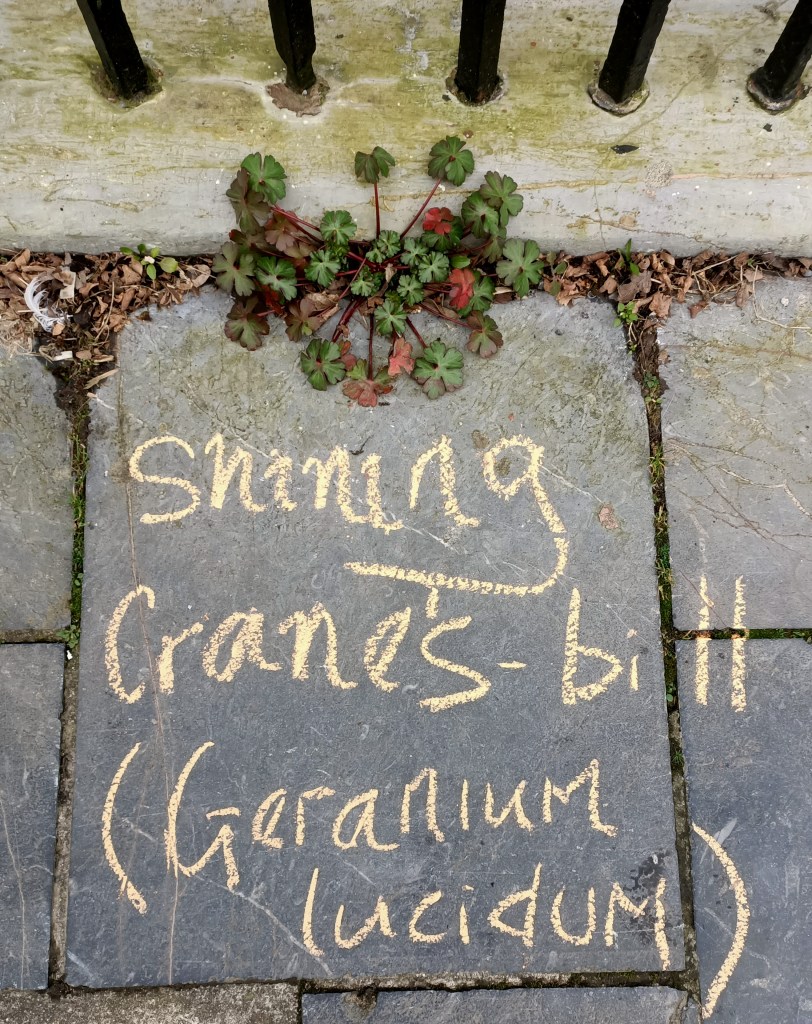 Shining
Crane's-bill
(Geranium
lucidum)